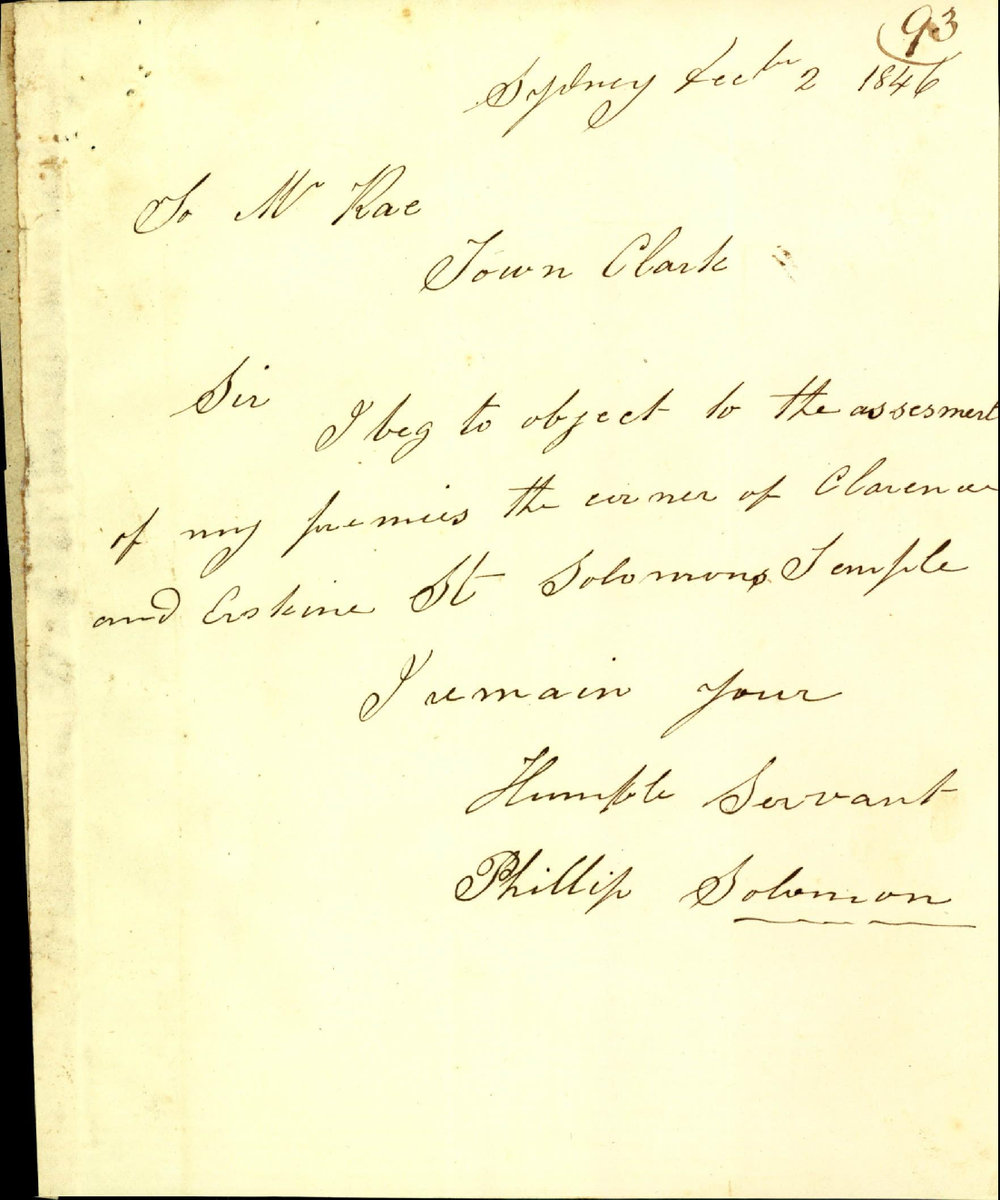 93
Sydney Decbr 2 1846
To Mr Rae
Town Clark
Sir
I beg to object to the assesment
of my premises the corner of Clarence
and Erskine St Solomons Temple
I remain your
Humble Servant
Phillip Solomon